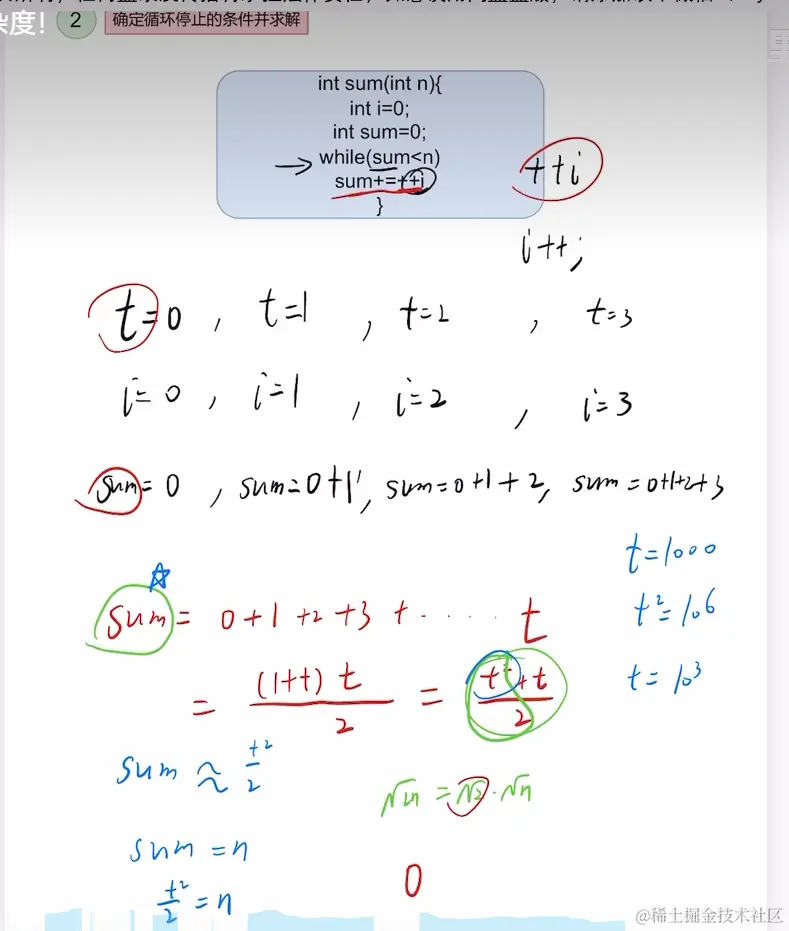 杂度!
2 确定循环停止的条件并求解
int sum(int n){
int i=0;
int sum=0;
while(sum<n)
sum+=++i
}
++i
i++;
t=0 , t=1 , t=2 , t=3
i=0 , i=1 , i=2 , i=3
sum=0 , sum=0+1, sum=0+1+2, sum=0+1+2+3
t=1000
t²=10⁶
t=10³
sum= 0+1+2+3+ ...... t
= (1+t)t/2 = t²+t/2
sum ≈ t²/2
√2n = √2·√n
sum=n
t²/2=n
0
@稀土掘金技术社区